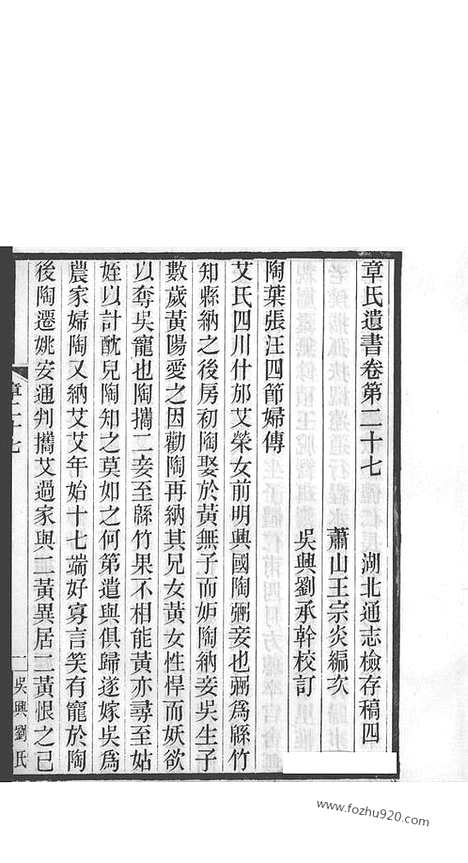 章氏遺書卷第二十七 湖北通志檢存稿四
蕭山王宗炎編次
吳興劉承幹校訂
陶葉張汪四節婦傳
艾氏四川什邡艾榮女前明興國陶㢸妾也㢸爲緜竹
知縣納之後房初陶娶於黃無子而妬陶納妾吳生子
數歲黃陽愛之因勸陶再納其兄女黃女性悍而妖欲
以奪吳寵也陶攜二妾至緜竹果不相能黃亦尋至姑
姪以計酖兒陶知之莫如之何第遣與俱歸遂嫁吳爲
農家婦陶又納艾艾年始十七端好寡言笑有寵於陶
後陶遷姚安通判攜艾過家與二黃異居二黃恨之已
章二十七
一
吳興劉氏
www.fozhu920.com